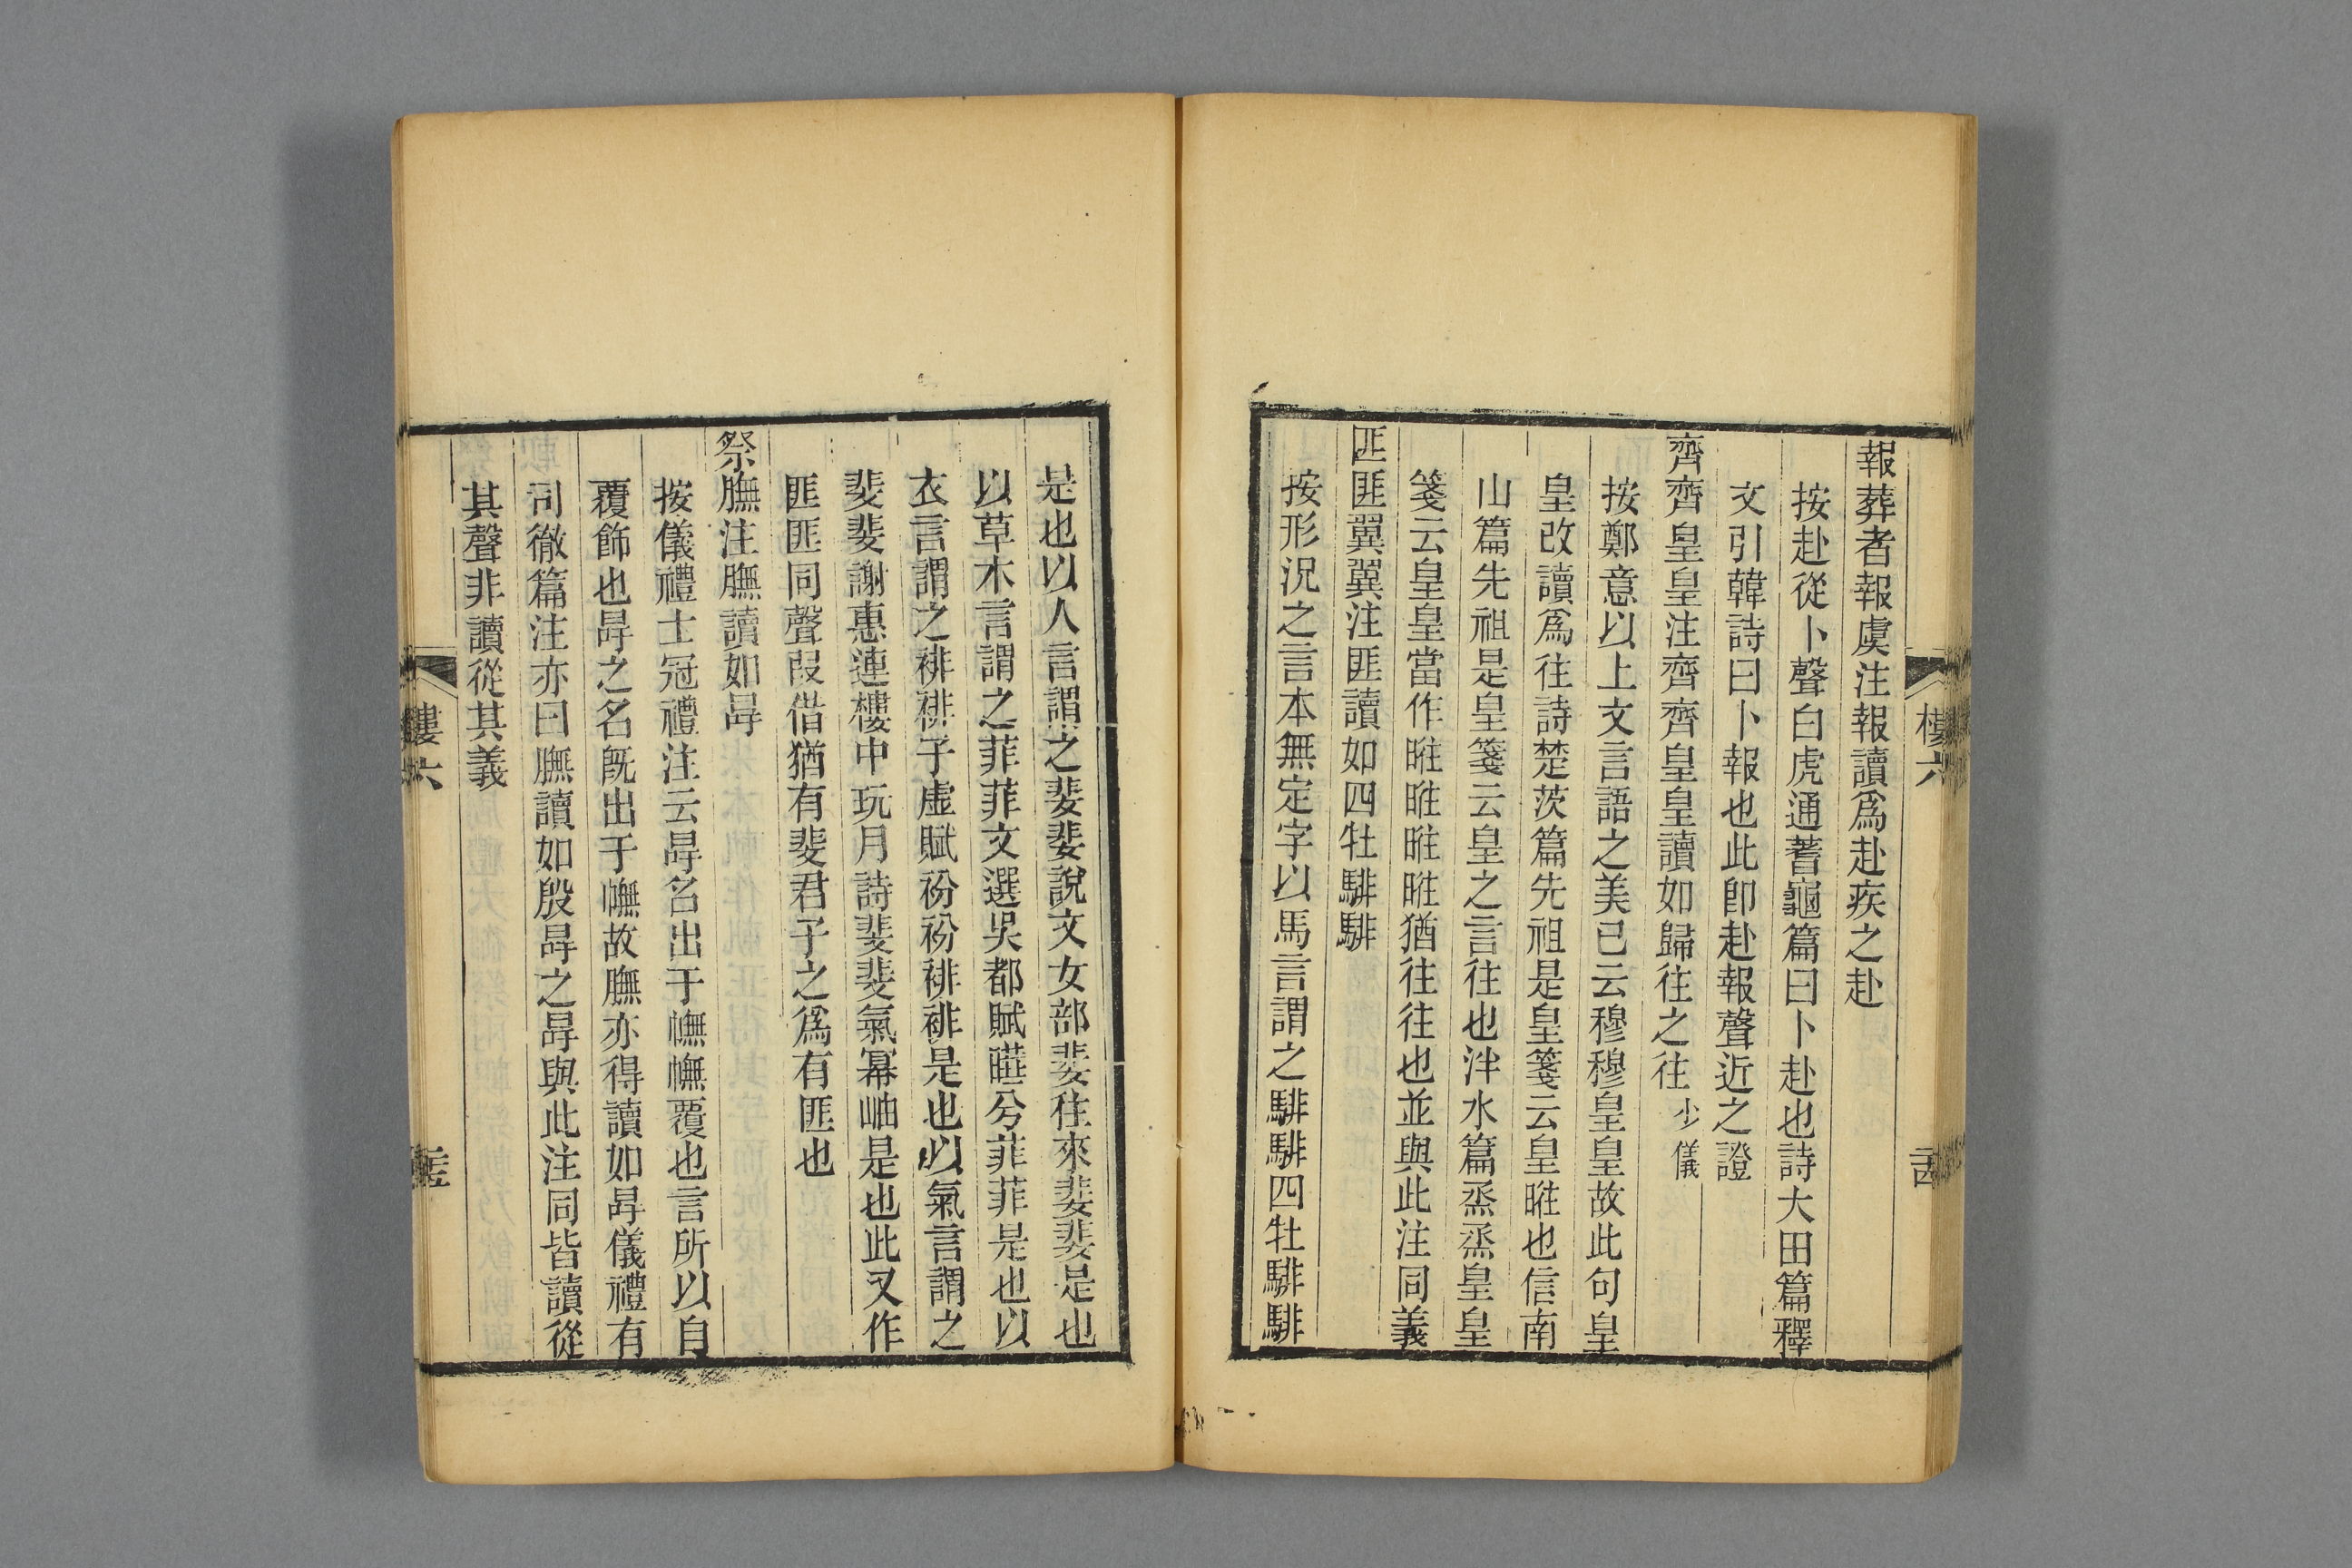 報葬者報虞注報讀爲赴疾之赴
按赴從卜聲白虎通蓍龜篇曰卜赴也詩大田篇釋
文引韓詩曰卜報也此卽赴報聲近之證
齊齊皇皇注齊齊皇皇讀如歸往之往少儀
按鄭意以上文言語之美已云穆穆皇皇故此句皇
皇改讀爲往詩楚茨篇先祖是皇箋云皇暀也信南
山篇先祖是皇箋云皇之言往也泮水篇烝烝皇皇
箋云皇皇當作暀暀暀暀猶往往也並與此注同義
匪匪翼翼注匪讀如四牡騑騑
按形況之言本無定字以馬言謂之騑騑四牡騑騑
是也以人言謂之婓婓說文女部婓往來婓婓是也
以草木言謂之菲菲文選吳都賦曄兮菲菲是也以
衣言謂之裶裶子虛賦衯衯裶裶是也以氣言謂之
斐斐謝惠連樓中玩月詩斐斐氣冪岫是也此又作
匪匪同聲叚借猶有斐君子之爲有匪也
祭膴注膴讀如冔
按儀禮士冠禮注云冔名出于幠幠覆也言所以自
覆飾也冔之名旣出于幠故膴亦得讀如冔儀禮有
司徹篇注亦曰膴讀如殷冔之冔與此注同皆讀從
其聲非讀從其義
樓六